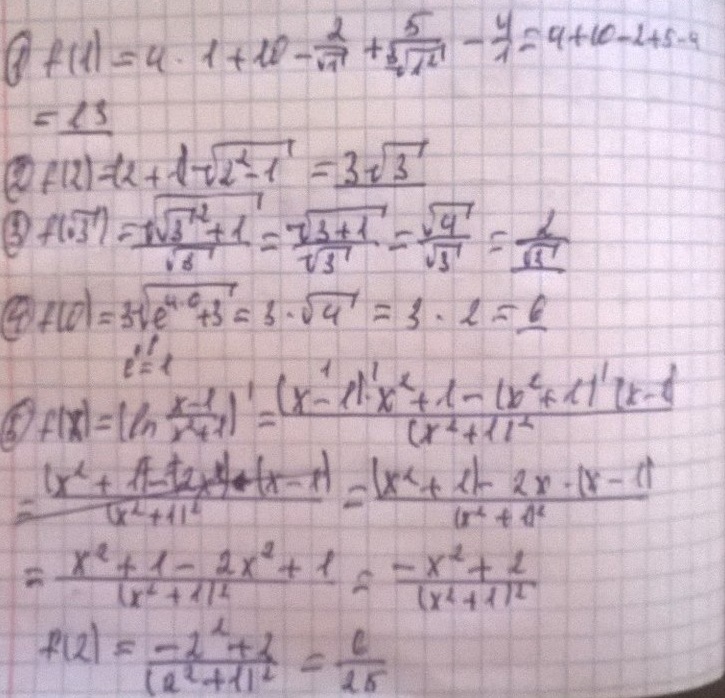 ① f(1) = 4 · 1 + 10 - 2/√1 + 5/∛1² - 4/1 = 4+10-2+5-4
= 13
② f(2) = (2 + 1)·√2²-1 = 3√3
③ f(√3) = √√3²+1/√3 = √3+1/√3 = √4/√3 = 2/√3
④ f(0) = 3√e⁴·⁰+3 = 3 · √4 = 3 · 2 = 6
e⁰ = 1
⑤ f(x) = (ln x-1/x²+1)' = (x-1)'·x²+1-(x²+1)'(x-1)/(x²+1)²
= (x²+1)-2x·(x-1)/(x²+1)²
= x²+1-2x²+1/(x²+1)² = -x²+2/(x²+1)²
f(2) = -2²+2/(2²+1)² = 6/25